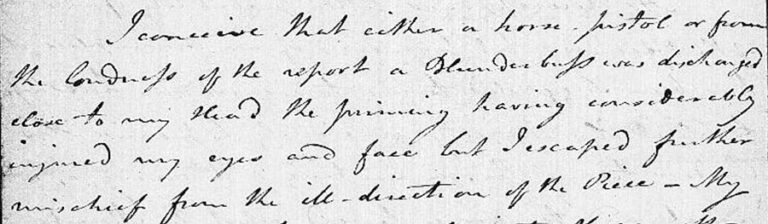 I conceive that either a horse-pistol or from
the loudness of the report a Blunderbuss was discharged
close to my Head the priming having considerably
injured my eyes and face but I escaped further
mischief from the ill-direction of the Piece – My